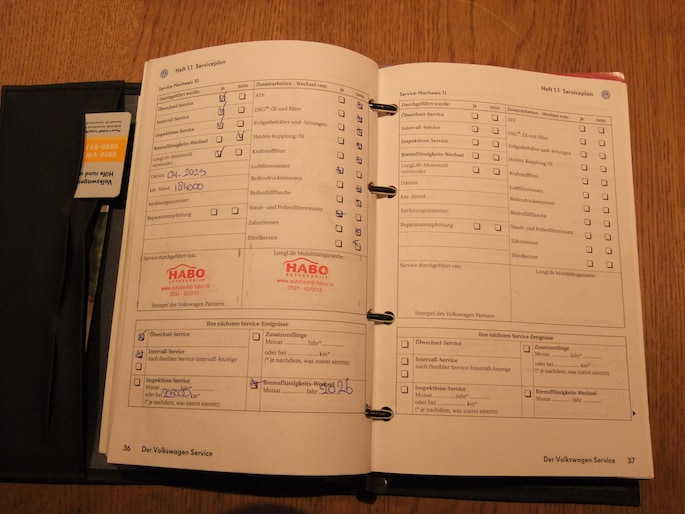 Heft 1.1 Serviceplan
Service-Nachweis 10
Durchgeführt wurde: ja nein
Ölwechsel-Service
Intervall-Service
Inspektions-Service
Bremsflüssigkeits-Wechsel
LongLife-Motorenöl
verwendet
Datum: 04.2025
km-Stand: 184000
Rechnungsnummer:
Reparaturempfehlung
Zusatzarbeiten - Wechsel von: ja nein
ATF
DSG®-Öl und Filter
Erdgasbehälter und -leitungen
Haldex Kupplung: Öl
Kraftstofffilter
Luftfiltereinsatz
Reifendrucksensoren
Reifenfüllflasche
Staub- und Pollenfiltereinsatz
Zahnriemen
Zündkerzen
Service durchgeführt von:
HABO
www.autobedrijf-habo.nl
Stempel des Volkswagen Partners
LongLife Mobilitätsgarantie:
HABO
www.autobedrijf-habo.nl
Ihre nächsten Service-Ereignisse
Ölwechsel-Service
Intervall-Service
nach flexibler Service-Intervall-Anzeige
Inspektions-Service
Monat Jahr*
oder bei km*
(* je nachdem, was zuerst eintritt)
Zusatzumfänge
Monat Jahr*
oder bei km*
(* je nachdem, was zuerst eintritt)
Bremsflüssigkeits-Wechsel
Monat Jahr 2026
36 Der Volkswagen Service
Heft 1.1 Serviceplan
Service-Nachweis 11
Durchgeführt wurde: ja nein
Ölwechsel-Service
Intervall-Service
Inspektions-Service
Bremsflüssigkeits-Wechsel
LongLife-Motorenöl
verwendet
Datum:
km-Stand:
Rechnungsnummer:
Reparaturempfehlung
Zusatzarbeiten - Wechsel von: ja nein
ATF
DSG®-Öl und Filter
Erdgasbehälter und -leitungen
Haldex Kupplung: Öl
Kraftstofffilter
Luftfiltereinsatz
Reifendrucksensoren
Reifenfüllflasche
Staub- und Pollenfiltereinsatz
Zahnriemen
Zündkerzen
Service durchgeführt von:
Stempel des Volkswagen Partners
LongLife Mobilitätsgarantie:
Ihre nächsten Service-Ereignisse
Ölwechsel-Service
Intervall-Service
nach flexibler Service-Intervall-Anzeige
Inspektions-Service
Monat Jahr*
oder bei km*
(* je nachdem, was zuerst eintritt)
Zusatzumfänge
Monat Jahr*
oder bei km*
(* je nachdem, was zuerst eintritt)
Bremsflüssigkeits-Wechsel
Monat Jahr
Der Volkswagen Service 37